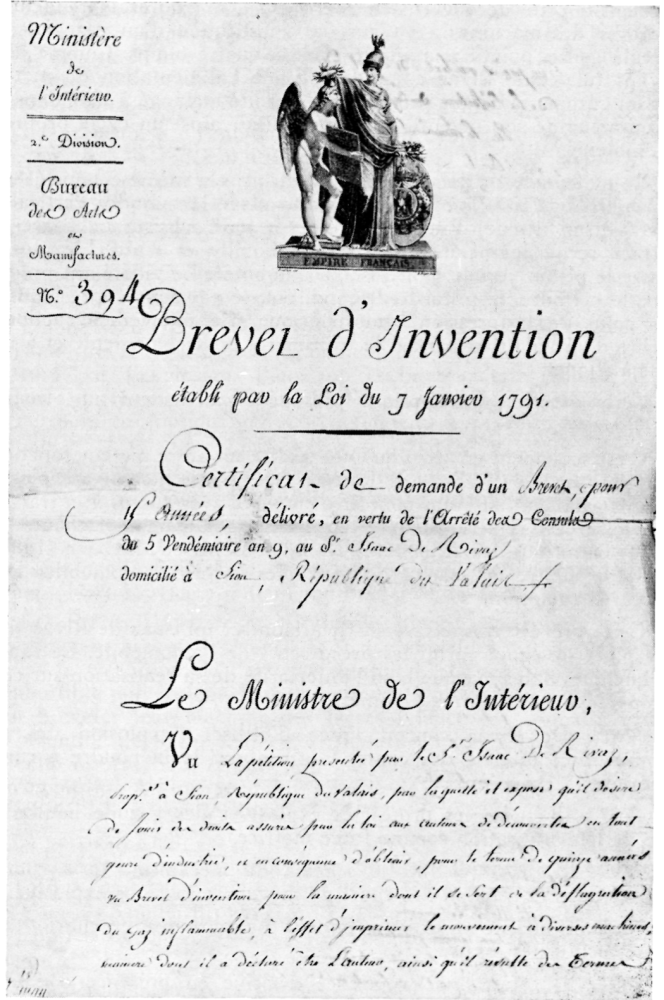 Ministère
de
l'Intérieur.
2.e Division.
Bureau
des Arts
et
Manufactures.
N.o 394
EMPIRE FRANÇAIS.
Brevet d'Invention
établi par la Loi du 7 Janvier 1791.
Certificat de demande d'un Brevet, pour
15 années, délivré, en vertu de l'Arrêté des Consuls
du 5 Vendémiaire an 9, au Sr. Isaac De Rivaz
domicilié à Sion, République du Valais
Le Ministre de l'Intérieur,
Vu La pétition presentée par le Sr. Isaac De Rivaz,
à Sion République du Valais, par laquelle il expose qu'il desire
de Jouir des droits assurés par la loi aux auteurs de découvertes en tout
genre d'industrie, et en conséquence d'obtenir, pour le terme de quinze années
un Brevet d'invention pour la maniere dont il se sert de la déflagration
du Gaz inflammable, à l'effet d'imprimer le mouvement à diverses machines,
maniere dont il a déclaré être L'auteur, ainsi qu'il résulte des Termes